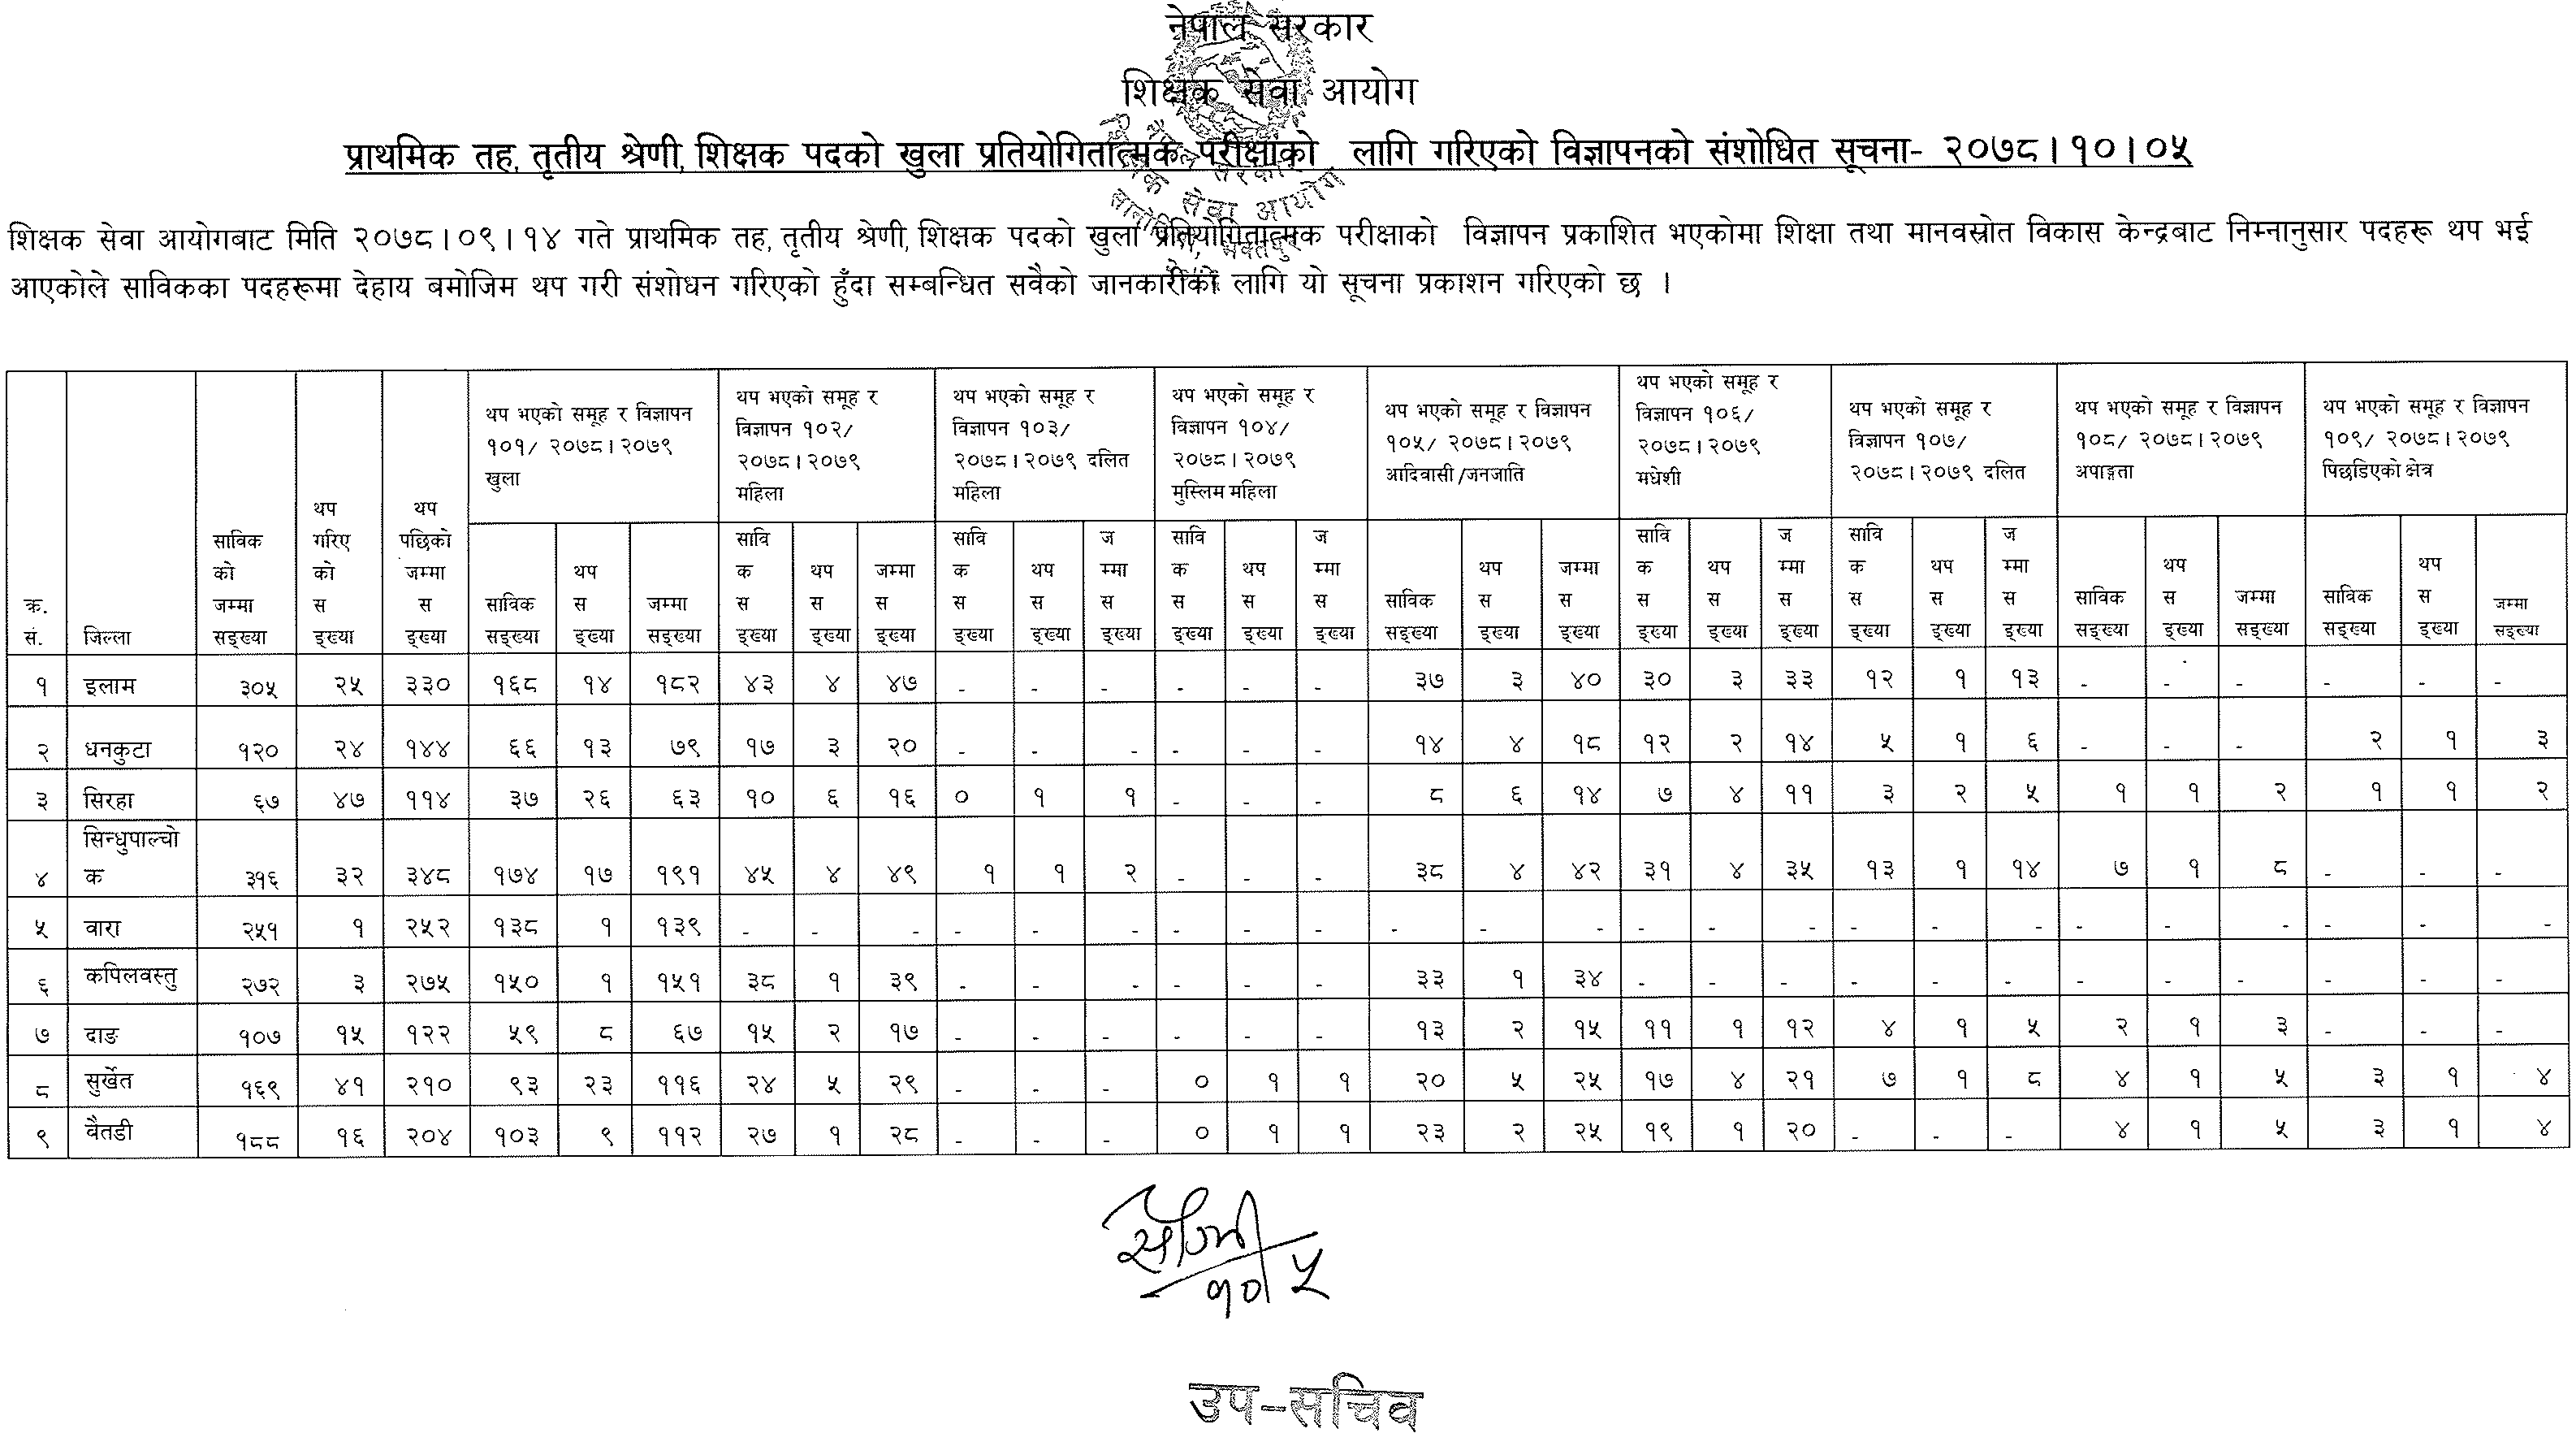 नेपाल सरकार
शिक्षक सेवा आयोग
प्राथमिक तह, तृतीय श्रेणी, शिक्षक पदको खुला प्रतियोगितात्मक परीक्षाको लागि गरिएको विज्ञापनको संशोधित सूचना- २०७८।१०।०५
शिक्षक सेवा आयोगबाट मिति २०७८।०९।१४ गते प्राथमिक तह, तृतीय श्रेणी, शिक्षक पदको खुला प्रतियोगितात्मक परीक्षाको विज्ञापन प्रकाशित भएकोमा शिक्षा तथा मानवस्रोत विकास केन्द्रबाट निम्नानुसार पदहरू थप भई
आएकोले साविकका पदहरूमा देहाय बमोजिम थप गरी संशोधन गरिएको हुँदा सम्बन्धित सवैको जानकारीको लागि यो सूचना प्रकाशन गरिएको छ ।
क्र. सं. जिल्ला साविक को जम्मा सङ्ख्या थप गरिए को स ङ्ख्या थप पछिको जम्मा स ङ्ख्या थप भएको समूह र विज्ञापन १०१/ २०७८।२०७९ खुला थप भएको समूह र विज्ञापन १०२/ २०७८।२०७९ महिला थप भएको समूह र विज्ञापन १०३/ २०७८।२०७९ दलित महिला थप भएको समूह र विज्ञापन १०४/ २०७८।२०७९ मुस्लिम महिला थप भएको समूह र विज्ञापन १०५/ २०७८।२०७९ आदिवासी/जनजाति थप भएको समूह र विज्ञापन १०६/ २०७८।२०७९ मधेशी थप भएको समूह र विज्ञापन १०७/ २०७८।२०७९ दलित थप भएको समूह र विज्ञापन १०८/ २०७८।२०७९ अपाङ्गता थप भएको समूह र विज्ञापन १०९/ २०७८।२०७९ पिछडिएको क्षेत्र
साविक सङ्ख्या थप स ङ्ख्या जम्मा सङ्ख्या सावि क स ङ्ख्या थप स ङ्ख्या जम्मा स ङ्ख्या सावि क स ङ्ख्या थप स ङ्ख्या ज म्मा स ङ्ख्या सावि क स ङ्ख्या थप स ङ्ख्या ज म्मा स ङ्ख्या साविक सङ्ख्या थप स ङ्ख्या जम्मा स ङ्ख्या सावि क स ङ्ख्या थप स ङ्ख्या ज म्मा स ङ्ख्या सावि क स ङ्ख्या थप स ङ्ख्या ज म्मा स ङ्ख्या साविक सङ्ख्या थप स ङ्ख्या जम्मा सङ्ख्या साविक सङ्ख्या थप स ङ्ख्या जम्मा सङ्ख्या
१ इलाम ३०५ २५ ३३० १६८ १४ १८२ ४३ ४ ४७ - - - - - - ३७ ३ ४० ३० ३ ३३ १२ १ १३ - - - - - -
२ धनकुटा १२० २४ १४४ ६६ १३ ७९ १७ ३ २० - - - - - - १४ ४ १८ १२ २ १४ ५ १ ६ - - - २ १ ३
३ सिरहा ६७ ४७ ११४ ३७ २६ ६३ १० ६ १६ ० १ १ - - - ८ ६ १४ ७ ४ ११ ३ २ ५ १ १ २ १ १ २
४ सिन्धुपाल्चोक ३१६ ३२ ३४८ १७४ १७ १९१ ४५ ४ ४९ १ १ २ - - - ३८ ४ ४२ ३१ ४ ३५ १३ १ १४ ७ १ ८ - - -
५ वारा २५१ १ २५२ १३८ १ १३९ - - - - - - - - - - - - - - - - - - - - - - - -
६ कपिलवस्तु २७२ ३ २७५ १५० १ १५१ ३८ १ ३९ - - - - - - ३३ १ ३४ - - - - - - - - - - - -
७ दाङ १०७ १५ १२२ ५९ ८ ६७ १५ २ १७ - - - - - - १३ २ १५ ११ १ १२ ४ १ ५ २ १ ३ - - -
८ सुर्खेत १६९ ४१ २१० ९३ २३ ११६ २४ ५ २९ - - - ० १ १ २० ५ २५ १७ ४ २१ ७ १ ८ ४ १ ५ ३ १ ४
९ वैतडी १८८ १६ २०४ १०३ ९ ११२ २७ १ २८ - - - ० १ १ २३ २ २५ १९ १ २० - - - ४ १ ५ ३ १ ४
१०।५
उप-सचिव